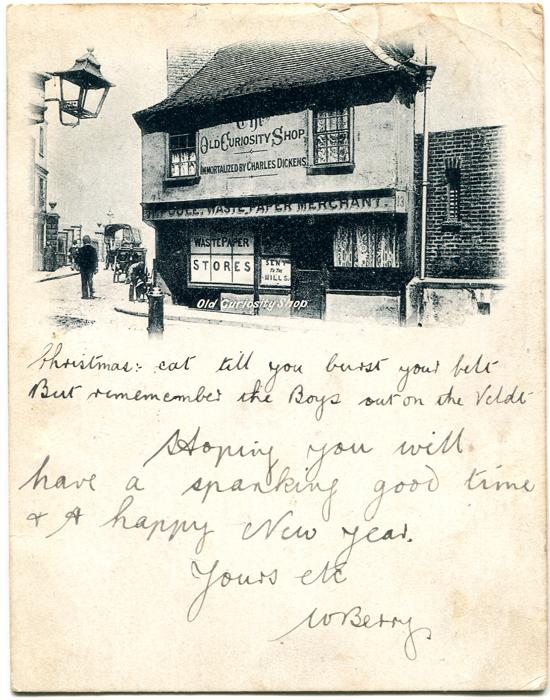 The
OLD CURIOSITY SHOP.
IMMORTALIZED BY CHARLES DICKENS.
POOLE. WASTE PAPER MERCHANT. 13
WASTE PAPER
STORES
SENT
TO THE
MILLS.
Old Curiosity Shop
Christmas:- eat till you burst your belt
But rememember the Boys out on the Veldt
Hoping you will
have a spanking good time
& A happy New year.
Yours etc
WBerry